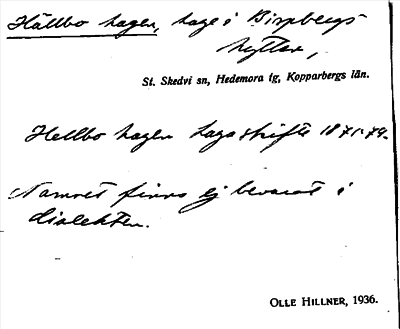 Hällbo hagen, hage i Bispbergs-
hyttan,
St. Skedvi sn, Hedemora tg, Kopparbergs län.
Hellbo hagen Laga skifte 1871-79.
Namnet finns ej bevarat i
dialekten.
OLLE HILLNER, 1936.